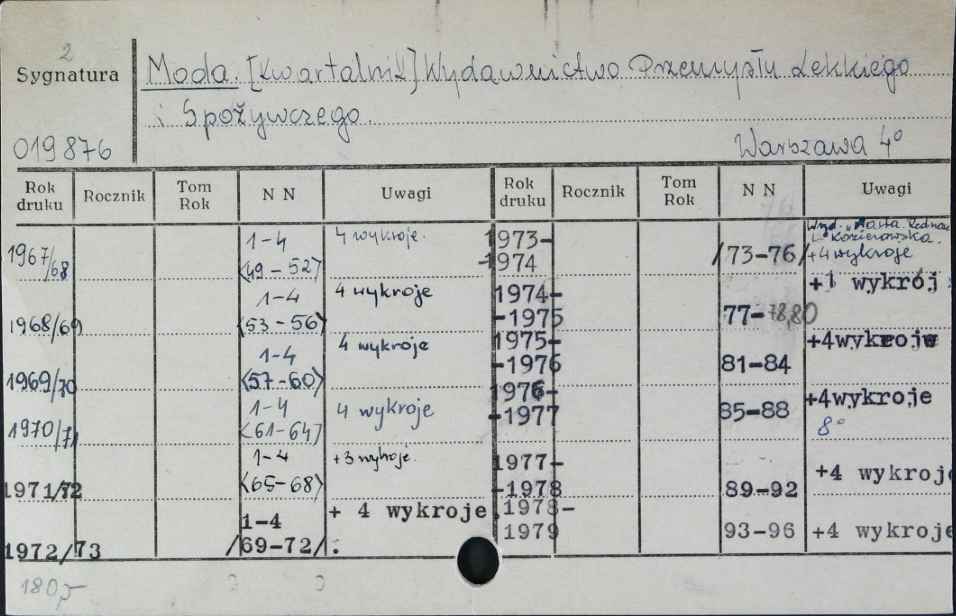 2
Sygnatura
Moda. [Kwartalnik] Wydawnictwo Przemysłu Lekkiego
i Spożywczego.
019876
Warszawa 4°
Rok druku Rocznik Tom Rok N N Uwagi Rok druku Rocznik Tom Rok N N Uwagi
1967/68 1-4 <49-52> 4 wykroje.
1968/69 1-4 <53-56> 4 wykroje
1969/70 1-4 <57-60> 4 wykroje
1970/71 1-4 <61-64> 4 wykroje
1971/72 1-4 <65-68> +3 wykroje.
1972/73 1-4 /69-72/. + 4 wykroje
1973-1974 /73-76/ Wyd. +4 wykroje
1974-1975 77-78,80 +1 wykrój
1975-1976 81-84 +4wykroje
1976-1977 85-88 +4wykroje 8°
1977-1978 89-92 +4 wykroje
1978-1979 93-96 +4 wykroje
180,-